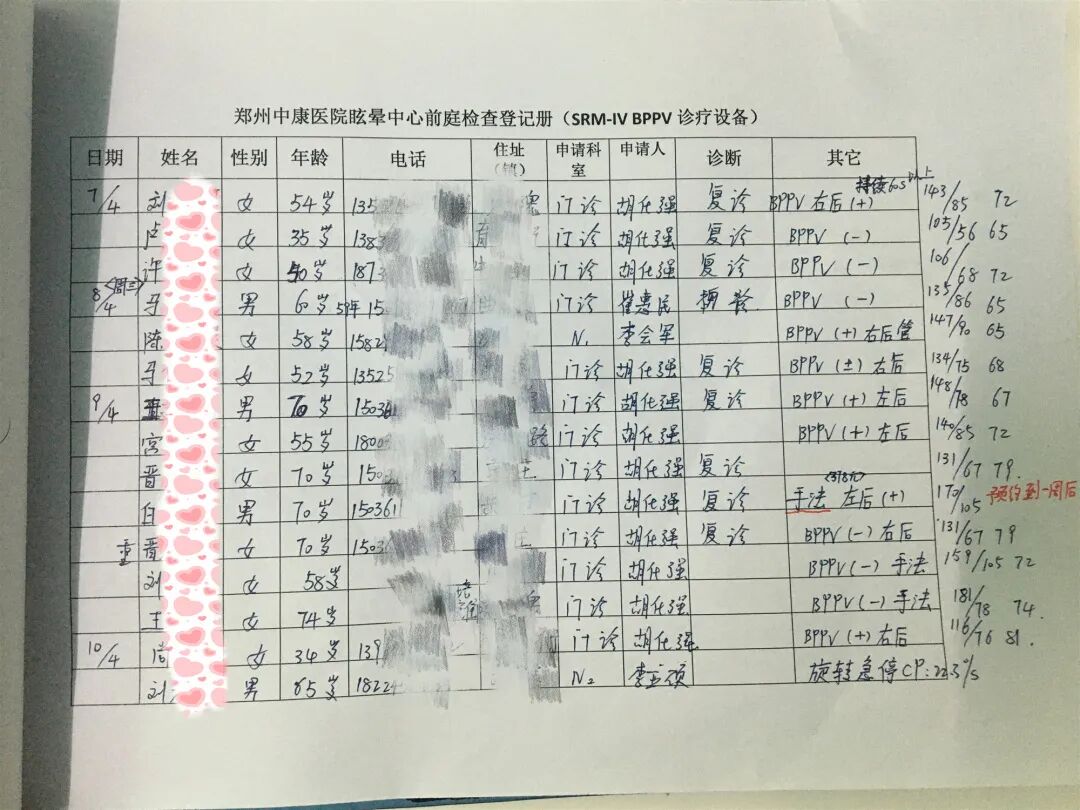 郑州中康医院眩晕中心前庭检查登记册（SRM-IV BPPV 诊疗设备）
日期 姓名 性别 年龄 电话 住址（镇） 申请科室 申请人 诊断 其它
7/4 刘 女 54岁 135 门诊 胡仕强 复诊 BPPV 右后(+) 持续60s以上 143/85 72
卢 女 35岁 1383 门诊 胡仕强 复诊 BPPV (-) 105/56 65
许 女 50岁 1873 门诊 胡仕强 复诊 BPPV (-) 106/68 72
8/4 <周三> 马 男 60岁 59年 15 门诊 崔惠民 BPPV (-) 135/86 65
陈 女 58岁 1582 N1 李会军 BPPV (+) 右后管 147/90 65
马 女 52岁 13525 门诊 胡仕强 复诊 BPPV (±) 右后 134/75 68
9/4 王 男 70岁 150361 门诊 胡仕强 复诊 BPPV (+) 左后 148/78 67
宫 女 55岁 1800 路 门诊 胡仕强 BPPV (+) 左后 140/85 72
晋 女 70岁 150 门诊 胡仕强 复诊 131/67 79
白 男 70岁 150361 门诊 胡仕强 复诊 手法 左后(+) 170/105 预约到一周后
重 晋 女 70岁 1503 庄 门诊 胡仕强 复诊 BPPV (-) 右后 131/67 79
刘 女 58岁 门诊 胡仕强 BPPV (-) 手法 159/105 72
王 女 74岁 门诊 胡仕强 BPPV (-) 手法 181/78 74
10/4 尚 女 34岁 139 门诊 胡仕强 BPPV (+) 右后 116/76 81
刘 男 65岁 18224 N2 旋转急停CP:22.3°/s